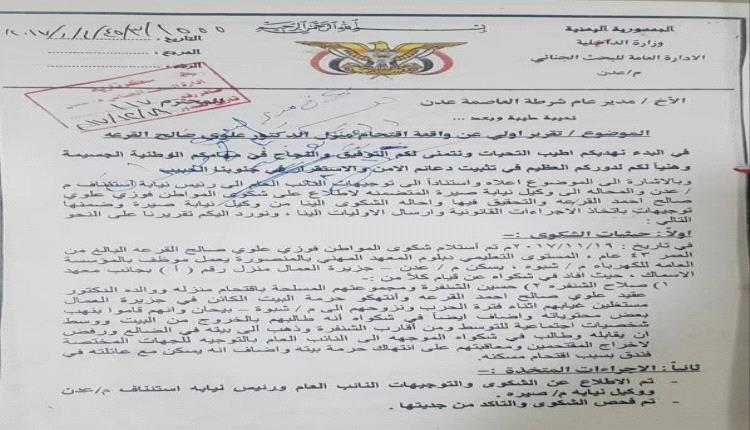 بسم الله الرحمن الرحيم
الجمهورية اليمنية
وزارة الداخلية
الادارة العامة للبحث الجنائي
م/عدن
التاريخ :
المرجع :
الأخ / مدير عام شرطة العاصمة عدن المحترم
تحية طيبة وبعد ...
الموضوع / تقرير اولي عن واقعة اقتحام منزل الدكتور علوي صالح القرعه
في البدء نهديكم اطيب التحيات ونتمنى لكم التوفيق والنجاح في مهامكم الوطنية الجسيمة
وهنيأ لكم لدوركم العظيم في تثبيت دعائم الامن والاستقرار في جنوبنا الحبيب
وبالاشارة الى الموضوع اعلاه واستناداً الى توجيهات النائب العام الى رئيس نيابة استئناف م
/ عدن والمحاله الى وكيل نيابة صيرة المتضمنه لاطلاع على شكوى المواطن فوزي علوي
صالح احمد القرعه والتحقيق فيها واحاله الشكوى الينا من وكيل نيابة صيرة وضمنها
توجيهات باتخاذ الاجراءات القانونية وارسال الاوليات الينا ، ونورد اليكم تقريرنا على النحو
التالي :
اولاً : حيثيات الشكوى :-
في تاريخ : ٢٠١٧/١١/١٩م تم استلام شكوى المواطن فوزي علوي صالح القرعه البالغ من
العمر ٤٣ عام ، المستوى التعليمي دبلوم المعهد المهني بالمنصورة يعمل موظف بالمؤسسة
العامه للكهرباء م/ شبوه ، يسكن م/ عدن – جزيرة العمال منزل رقم ( أ ) بجانب معهد
الاسماك ، حيث افاد في شكواه عن قيام كلاً من :-
١) صلاح الشنفره ٢) حسين الشنفرة ومجموعتهم المسلحة باقتحام منزله ووالده الدكتور
عقيد علوي صالح حمد القرعه وانتهكو حرمة البيت الكائن في جزيرة العمال
مستغلين غيابهم اثناء فترة الحرب ونزوحهم الى م/ شبوة – بيحان وانهم قاموا بنهب
بعض محتوياته واضاف ايضاً في شكواه انه طالبهم بالخروج من البيت ووسط
شخصيات اجتماعية للتوسط ومن أقارب الشنفرة وذهب الى بيته في الضالع ورفض
ان يقابله وطالب في شكواه الموجهه الى النائب العام بالتوجيه للجهات المختصة
لاخراج المقتحمين ومعاقبتهم على انتهاك حرمة بيته واضاف انه يسكن مع عائلته في
فندق بسبب اقتحام مسكنه.
ثانياً : الاجراءات المتخذة :-
- تم الاطلاع عن الشكوى والتوجيهات النائب العام ورئيس نيابه استئناف م/عدن
ووكيل نيابه م/ صيره .
- تم فحص الشكوى والتأكد من جديتها .